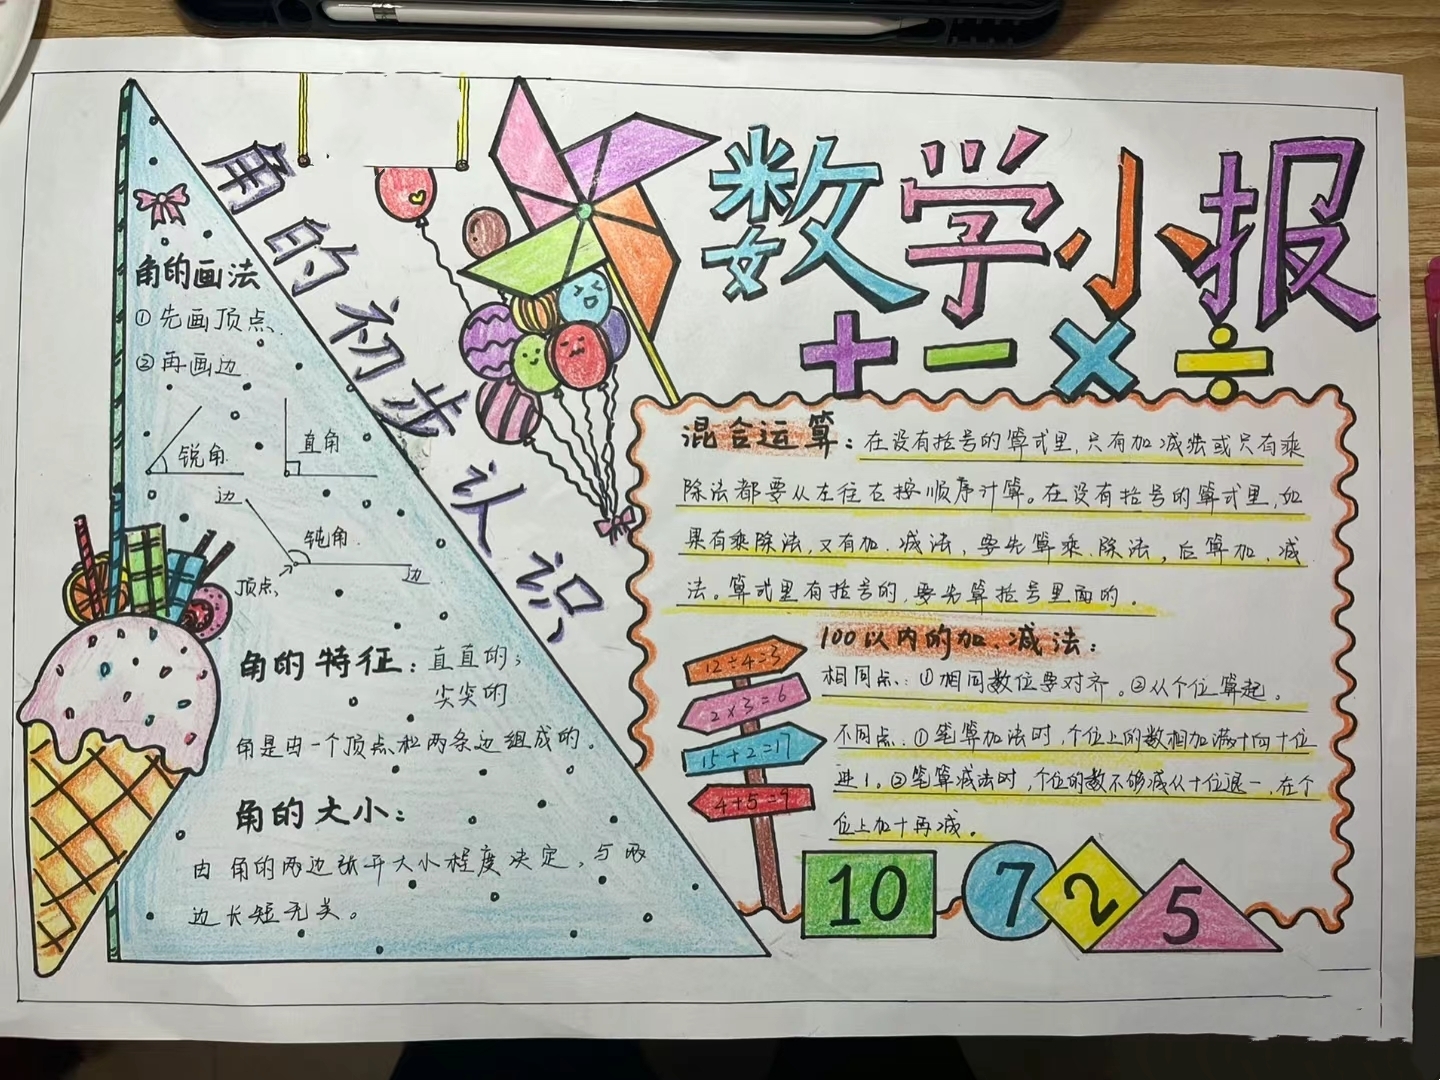 数学小报
+ − × ÷
角的初步认识
角的画法
①先画顶点.
②再画边
锐角
直角
边
钝角.
顶点
边
角的特征：直直的；
尖尖的
角是由一个顶点和两条边组成的。
角的大小：
由角的两边张开大小程度决定，与两
边长短无关。
混合运算：在设有括号的算式里，只有加减法或只有乘
除法都要从左往右按顺序计算。在设有括号的算式里，如
果有乘除法，又有加、减法，要先算乘、除法，后算加、减
法。算式里有括号的，要先算括号里面的。
100以内的加、减法：
相同点：①相同数位要对齐。②从个位算起。
不同点：①笔算加法时，个位上的数相加满十向十位
进1。②笔算减法时，个位的数不够减从十位退一，在个
位上加十再减。
12÷4=3
2×3=6
15+2=17
4+5=9
10
7
2
5